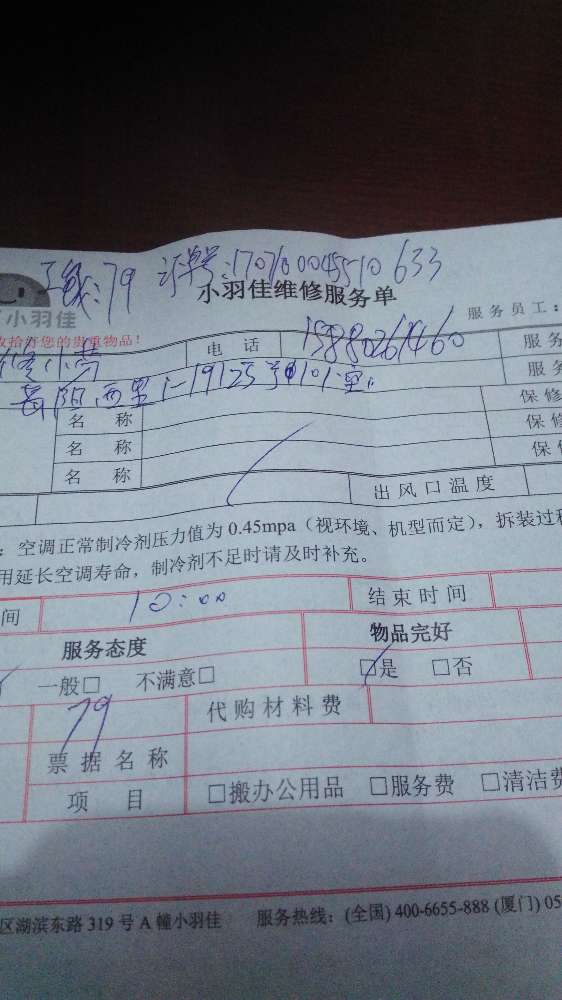 :79 订单号:1707100045510633
小羽佳维修服务单
小羽佳
服务员工:
收拾好您的贵重物品!
电 话 15880261460 服务
服务
西里 101室
名 称 保修
名 称 保修
名 称 保修
出风口温度
:空调正常制冷剂压力值为0.45mpa(视环境、机型而定),拆装过程
用延长空调寿命,制冷剂不足时请及时补充。
间 10:00 结束时间
服务态度 物品完好
一般□ 不满意□ ☑是 □否
79 代购材料费
票据名称
项 目 □搬办公用品 □服务费 □清洁费
区湖滨东路319号A幢小羽佳 服务热线:(全国)400-6655-888(厦门)05